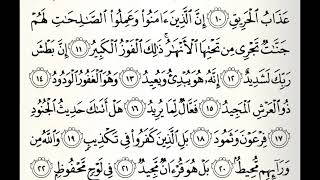 عَذَابُ الْحَرِيقِ ١٠ إِنَّ الَّذِينَ ءَامَنُوا وَعَمِلُوا الصَّـٰلِحَـٰتِ لَهُمْ
جَنَّـٰتٌ تَجْرِى مِن تَحْتِهَا الْأَنْهَـٰرُ ذَٰلِكَ الْفَوْزُ الْكَبِيرُ ١١ إِنَّ بَطْشَ
رَبِّكَ لَشَدِيدٌ ١٢ إِنَّهُ هُوَ يُبْدِئُ وَيُعِيدُ ١٣ وَهُوَ الْغَفُورُ الْوَدُودُ ١٤
ذُو الْعَرْشِ الْمَجِيدُ ١٥ فَعَّالٌ لِّمَا يُرِيدُ ١٦ هَلْ أَتَىٰكَ حَدِيثُ الْجُنُودِ
١٧ فِرْعَوْنَ وَثَمُودَ ١٨ بَلِ الَّذِينَ كَفَرُوا فِى تَكْذِيبٍ ١٩ وَاللَّهُ مِن
وَرَآئِهِم مُّحِيطٌ ٢٠ بَلْ هُوَ قُرْءَانٌ مَّجِيدٌ ٢١ فِى لَوْحٍ مَّحْفُوظٍ ٢٢